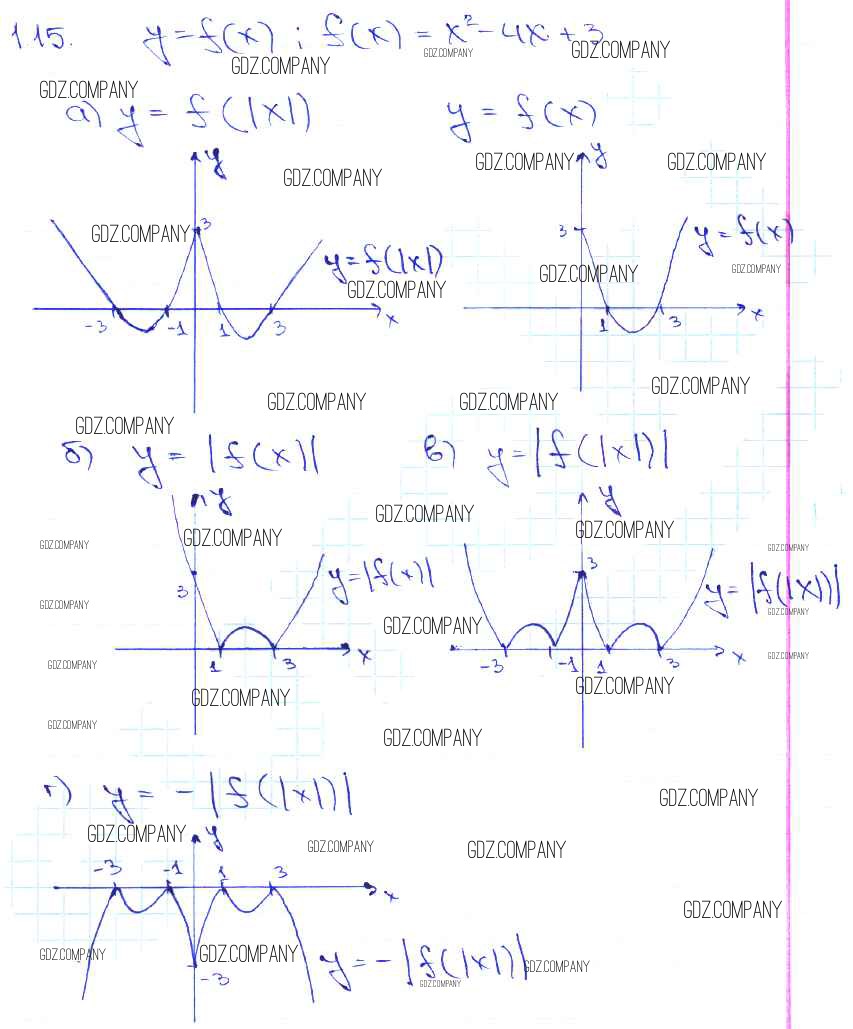 115. y = f(x) ; f(x) = x² - 4x + 3
GDZ.COMPANY GDZ.COMPANY
GDZ.COMPANY
GDZ.COMPANY
а) y = f(|x|) y = f(x)
y GDZ.COMPANY y GDZ.COMPANY
GDZ.COMPANY
3 3
GDZ.COMPANY y = f(x)
y = f(|x|) GDZ.COMPANY GDZ.COMPANY
GDZ.COMPANY
-3 -1 1 3 x 1 3 x
GDZ.COMPANY
GDZ.COMPANY GDZ.COMPANY
GDZ.COMPANY
б) y = |f(x)| в) y = |f(|x|)|
y y
GDZ.COMPANY
GDZ.COMPANY GDZ.COMPANY
GDZ.COMPANY GDZ.COMPANY
3 y = |f(x)| 3 y = |f(|x|)|
GDZ.COMPANY GDZ.COMPANY
GDZ.COMPANY
1 3 x -3 -1 1 3 x GDZ.COMPANY
GDZ.COMPANY
GDZ.COMPANY GDZ.COMPANY
GDZ.COMPANY
GDZ.COMPANY
г) y = -|f(|x|)|
GDZ.COMPANY
GDZ.COMPANY y
GDZ.COMPANY GDZ.COMPANY
-3 -1 1 3 x
GDZ.COMPANY
GDZ.COMPANY GDZ.COMPANY
-3 y = -|f(|x|)| GDZ.COMPANY
GDZ.COMPANY